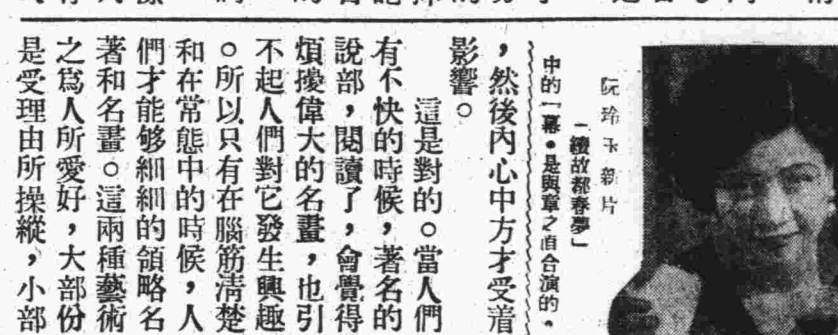 阮玲玉新片
「續故都春夢」
中的一幕。是與章之直合演的。
，然後內心中方才受着
影響。
這是對的。當人們
有不快的時候，著名的
說部，閱讀了，會覺得
煩擾偉大的名畫，也引
不起人們對它發生興趣
。所以只有在腦筋清楚
和在常態中的時候，人
們才能够細細的領略名
著和名畫。這兩種藝術
之爲人所愛好，大部份
是受理由所操縱，小部